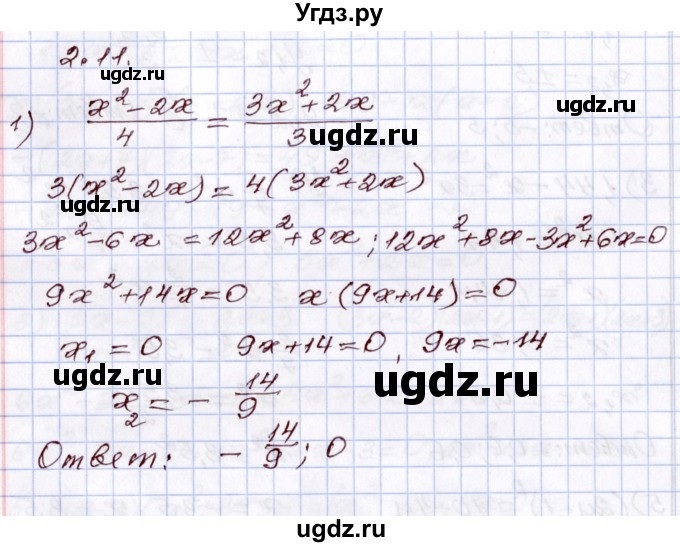 Угдз.ру
2.11.
ugdz.ru
1) (x² - 2x)/4 = (3x² + 2x)/3
ugdz.ru
3(x² - 2x) = 4(3x² + 2x)
ugdz.ru
3x² - 6x = 12x² + 8x; 12x² + 8x - 3x² + 6x = 0
9x² + 14x = 0 x(9x + 14) = 0
x₁ = 0 9x + 14 = 0, 9x = -14
ugdz.ru ugdz.ru
x₂ = - 14/9
Ответ: - 14/9; 0
ugdz.ru
ugdz.ru